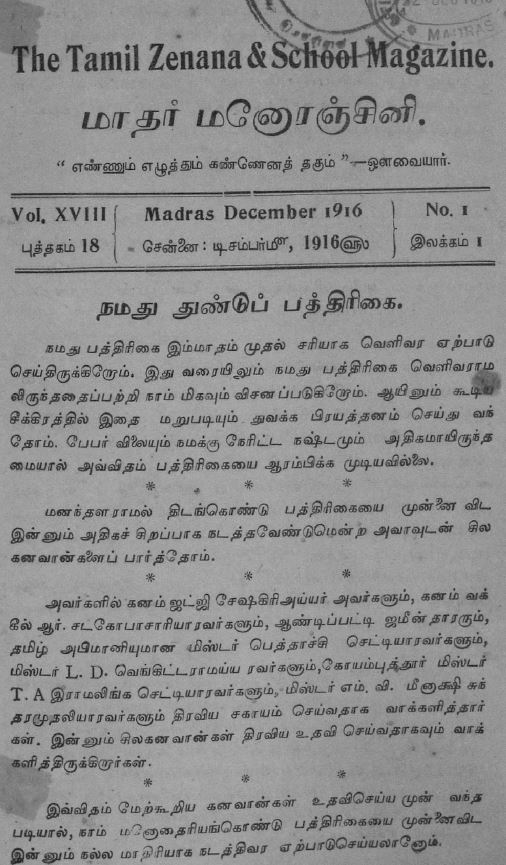 சென்னை
MADRAS
The Tamil Zenana & School Magazine.
மாதர் மனோரஞ்சினி.
" எண்ணும் எழுத்தும் கண்ணெனத் தகும் "—ஔவையார்.
Vol. XVIII Madras December 1916 No. 1
புத்தகம் 18 சென்னை: டிசம்பர்மீ, 1916௵ இலக்கம் 1
நமது துண்டுப் பத்திரிகை.
நமது பத்திரிகை இம்மாதம் முதல் சரியாக வெளிவர ஏற்பாடு
செய்திருக்கிறோம். இது வரையிலும் நமது பத்திரிகை வெளிவராம
லிருந்ததைப்பற்றி நாம் மிகவும் விசனப்படுகிறோம். ஆயினும் கூடிய
சீக்கிரத்தில் இதை மறுபடியும் துவக்க பிரயத்தனம் செய்து வந்
தோம். பேபர் விலையும் நமக்கு நேரிட்ட நஷ்டமும் அதிகமாயிருந்த
மையால் அவ்விதம் பத்திரிகையை ஆரம்பிக்க முடியவில்லை.
* * *
மனந்தளராமல் திடங்கொண்டு பத்திரிகையை முன்னை விட
இன்னும் அதிகச் சிறப்பாக நடத்தவேண்டுமென்ற அவாவுடன் சில
கனவான்களைப் பார்த்தோம்.
* * *
அவர்களில் கனம் ஜட்ஜி சேஷகிரிஅய்யர் அவர்களும், கனம் வக்
கீல் ஆர். சடகோபாசாரியாரவர்களும், ஆண்டிப்பட்டி ஜமீன் தாரரும்,
தமிழ் அபிமானியுமான மிஸ்டர் பெத்தாச்சி செட்டியாரவர்களும்,
மிஸ்டர் L. D. வெங்கிட்டராமய்ய ரவர்களும்,கோயம்புத்தூர் மிஸ்டர்
T. A இராமலிங்க செட்டியாரவர்களும், மிஸ்டர் எம். வி. மீனாக்ஷி சுந்
தரமுதலியாரவர்களும் திரவிய சகாயம் செய்வதாக வாக்களித்தார்
கள். இன்னும் சிலகனவான்கள் திரவிய உதவி செய்வதாகவும் வாக்
களித்திருக்கிறார்கள்.
* * *
இவ்விதம் மேற்கூறிய கனவான்கள் உதவிசெய்ய முன் வந்த
படியால், நாம் மனோதைரியங்கொண்டு பத்திரிகையை முன்னைவிட
இன்னும் நல்ல மாதிரியாக நடத்திவர ஏற்பாடுசெய்யலானோம்.